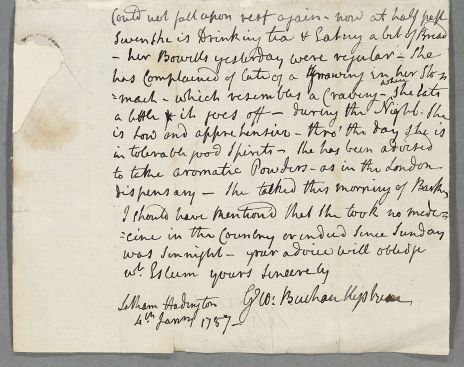 Could not fall upon rest again - now at half past
Seven she is Drinking tea & Eating a bit of Bread
- her Bowells yesterday were regular - She
has Complained of late of a Gnawing in her Sto=
=mach - which resembles a Craving - when She Eats
a little it goes off - during the Night. She
is Low and apprehensive - thro' the day She is
in tolerable good Spirits - She has been advised
to take aromatic Powders - as in the London
dispensary - She talked this morning of Bark
I should have mentiond that She took no mede=
=cine in the Country or indeed Since Sunday
was Sennight - your advice will obledge
wt. Esteem yours Sincerely
Go: Buchan Hepburn
Letham Hadington
4th Janry 1787